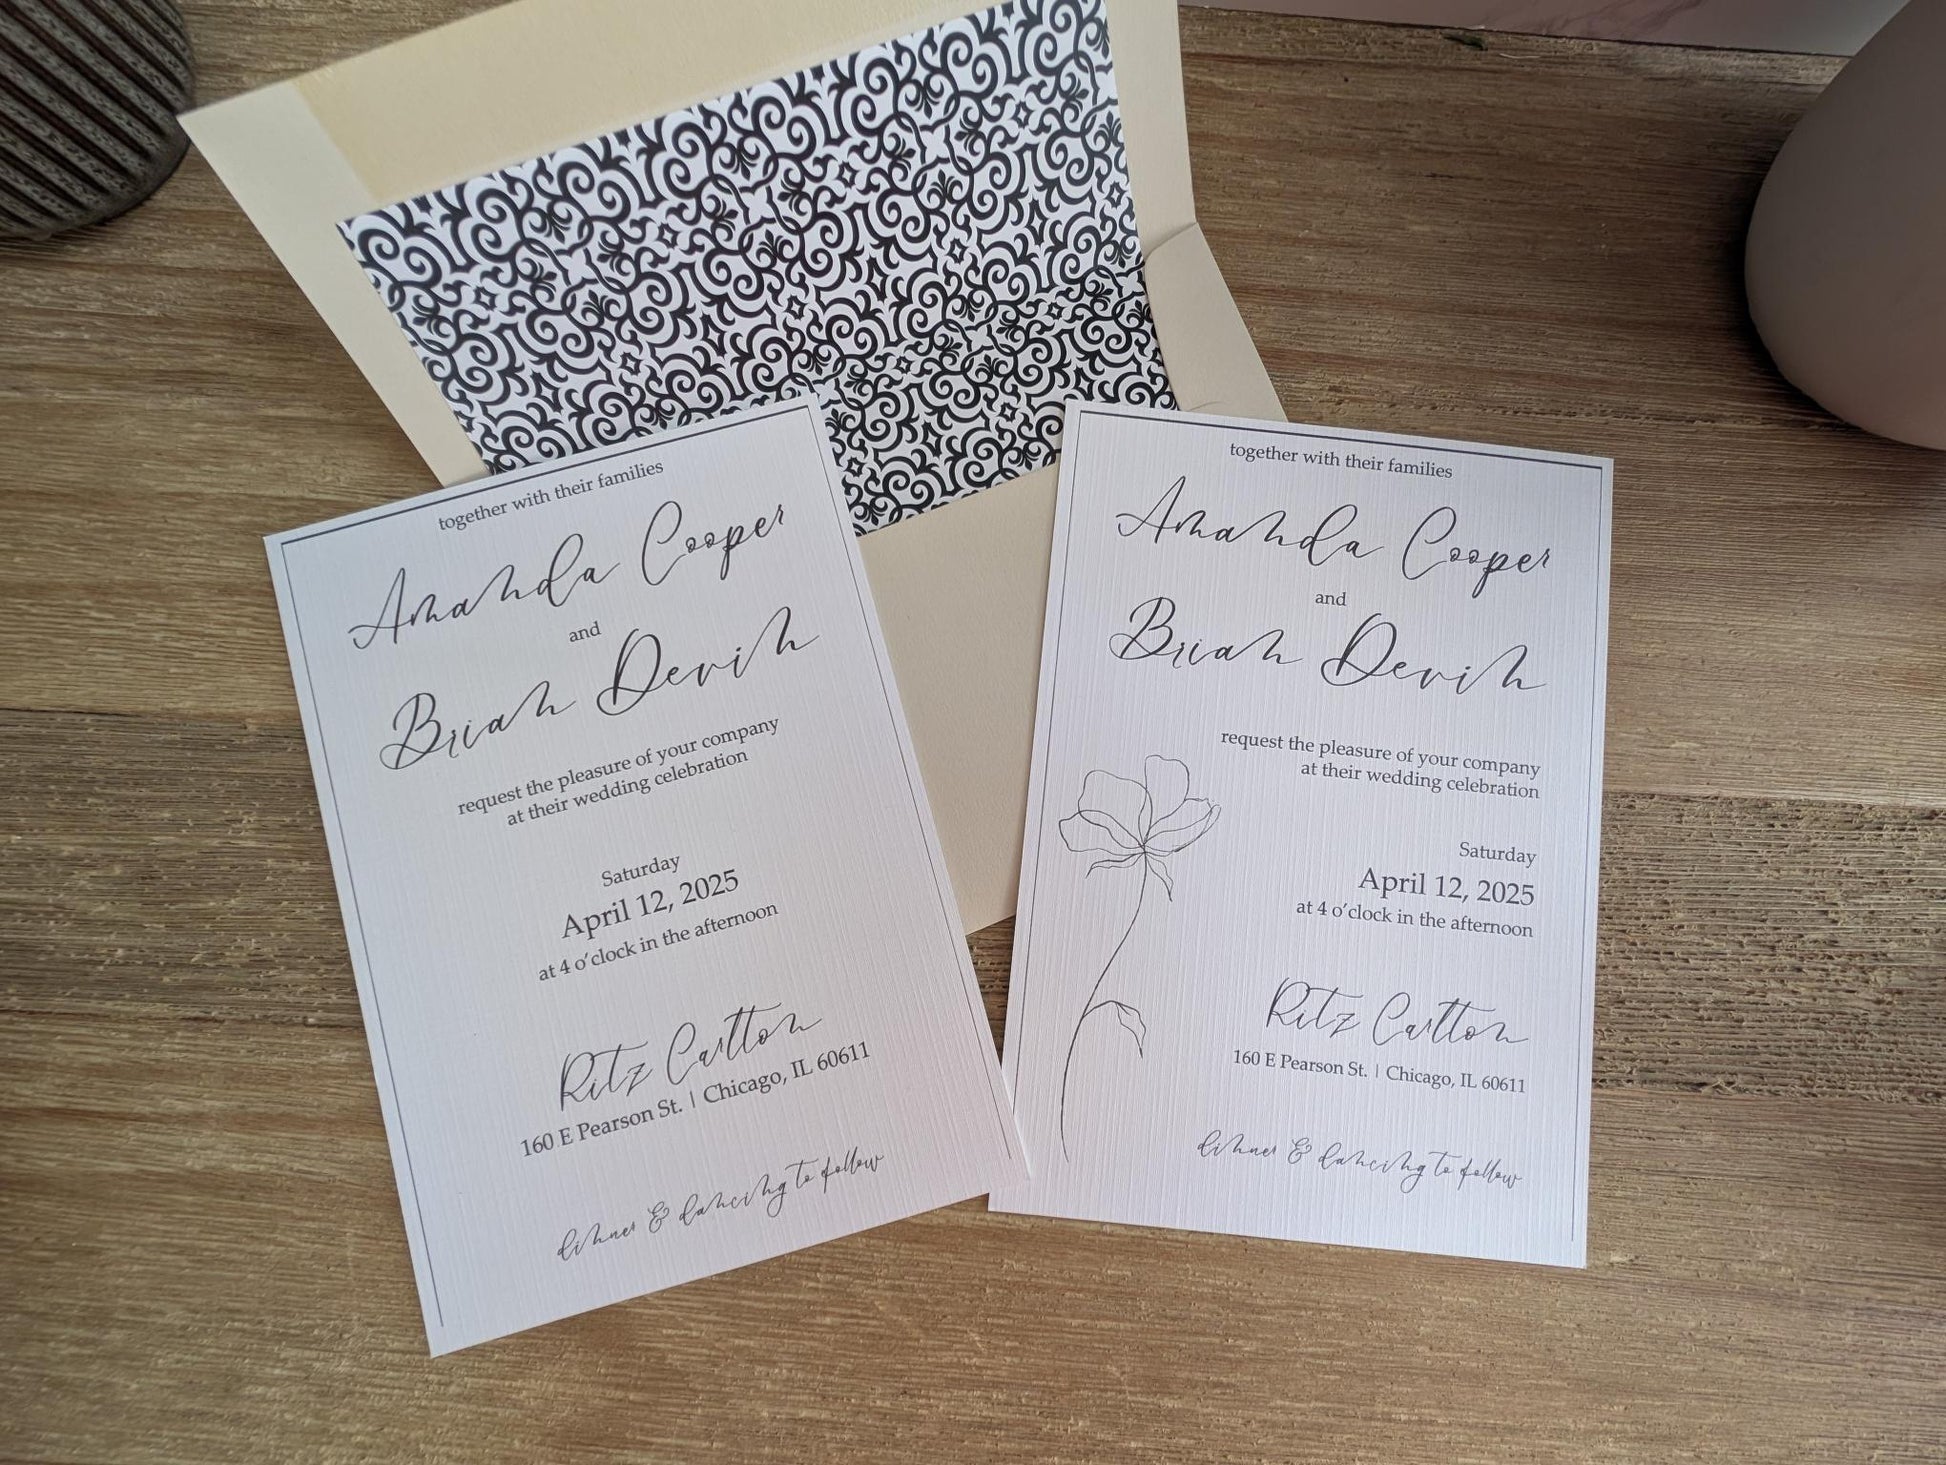 together with their families
Amanda Cooper
and
Brian Devin
request the pleasure of your company
at their wedding celebration
Saturday
April 12, 2025
at 4 o'clock in the afternoon
Ritz Carlton
160 E Pearson St. | Chicago, IL 60611
dinner & dancing to follow
together with their families
Amanda Cooper
and
Brian Devin
request the pleasure of your company
at their wedding celebration
Saturday
April 12, 2025
at 4 o'clock in the afternoon
Ritz Carlton
160 E Pearson St. | Chicago, IL 60611
dinner & dancing to follow